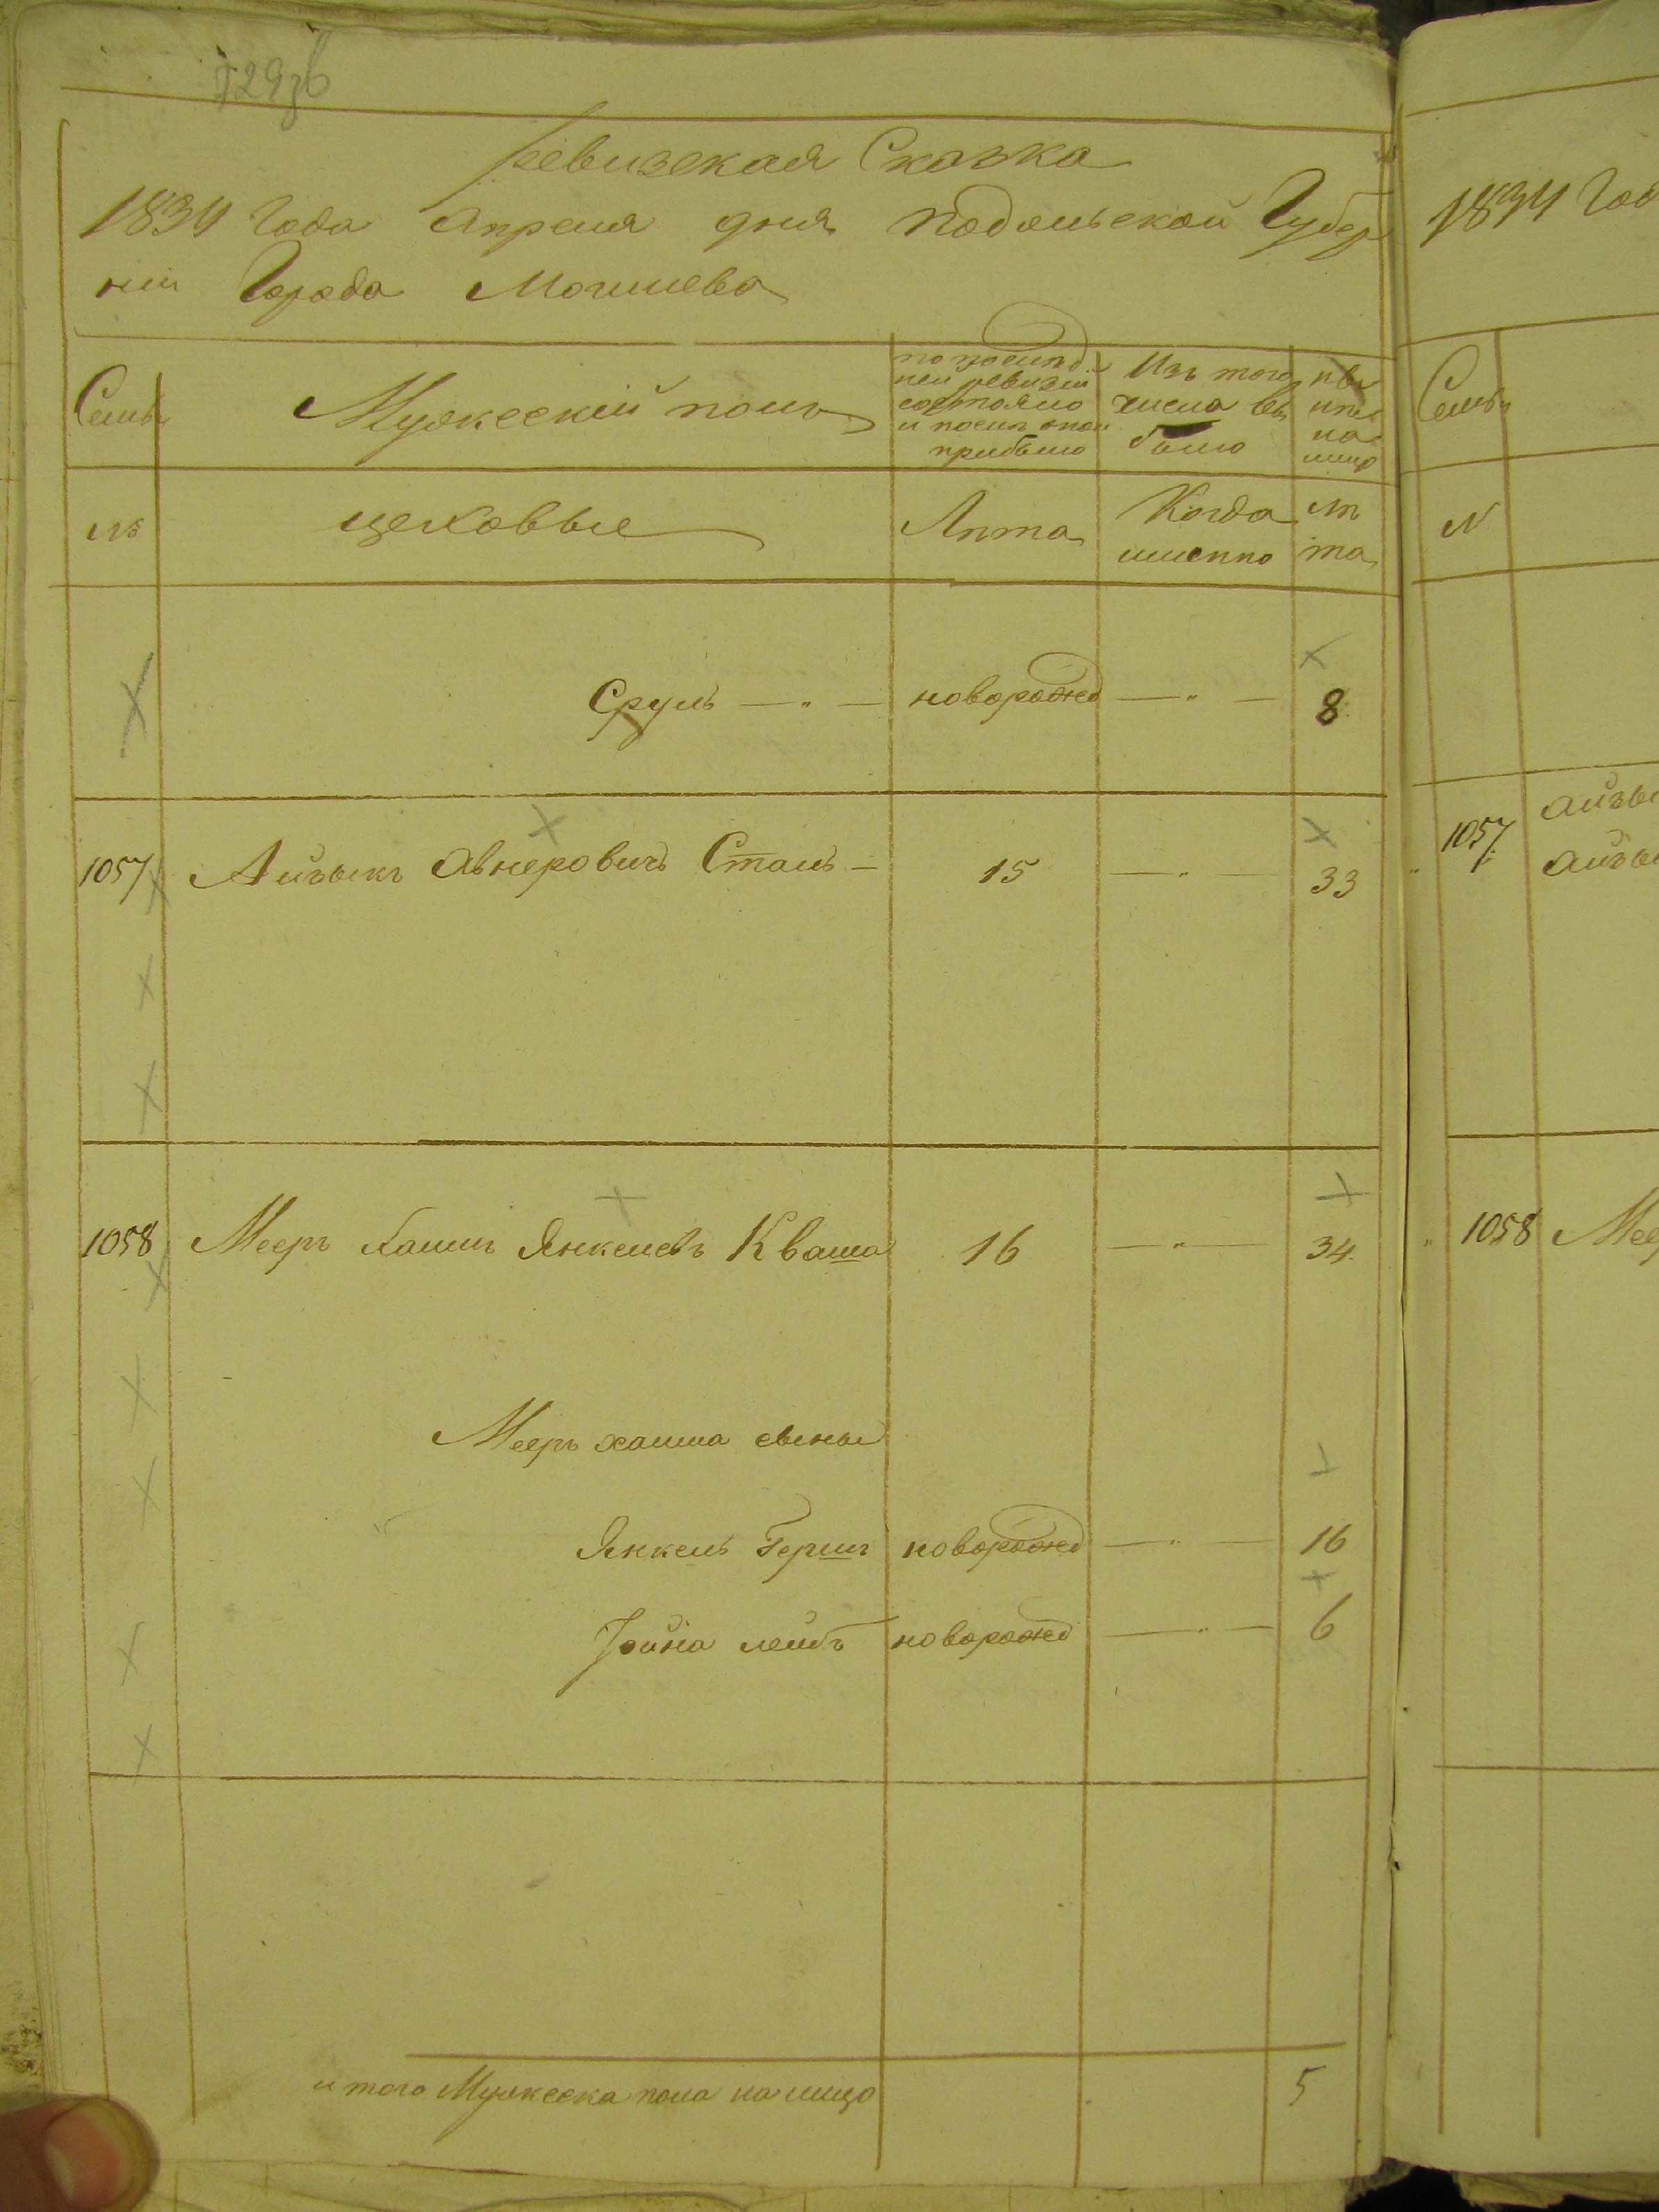 Ревизская Сказка
1834 Года Апреля дня Подольской Губер
нии Города Могилева
Семьи
Мужеский полъ
по послѣд
ней ревизіи
состояло
и послѣ оной
прибыло
Изъ того
числа вы
было
нынѣ
на
лицо
№
цеховые
Лѣта
Когда
именно
Лѣ
та
Сруль — " — новорожд — " — 8
1057 Айзыкъ Авнеровичъ Сталь — 15 — " — 33
1058 Мееръ Хаимъ Янкелевъ Кваша 16 — " — 34
Мееръ хаима сыны
Янкель Гершъ новорожд — " — 16
Іойна лейбъ новорожд — " — 6
итого Мужеска пола на лицо 5
1834 Год
Семьи
N
1057 айзы
айзы
1058 Мее